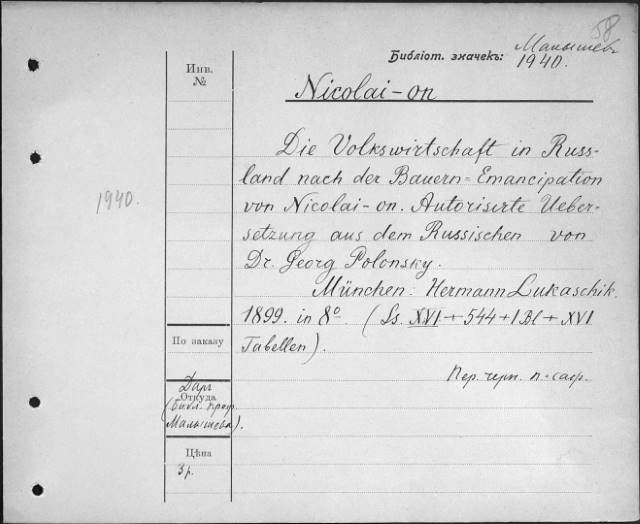 58
Библіот. значекъ: Малышев
1940.
Инв.
№
Nicolai-on
Die Volkswirtschaft in Russ-
land nach der Bauern=Emancipation
von Nicolai-on. Autorisirte Ueber-
setzung aus dem Russischen von
Dr. Georg Polonsky.
München: Hermann Lukaschik.
1899. in 8º (Ss. XVI+544+1Bl+XVI
Tabellen).
1940.
По заказу
Пер. черн. п.=сафр.
Даръ
Откуда
(библ. проф.
Малышева).
Цѣна
3 р.